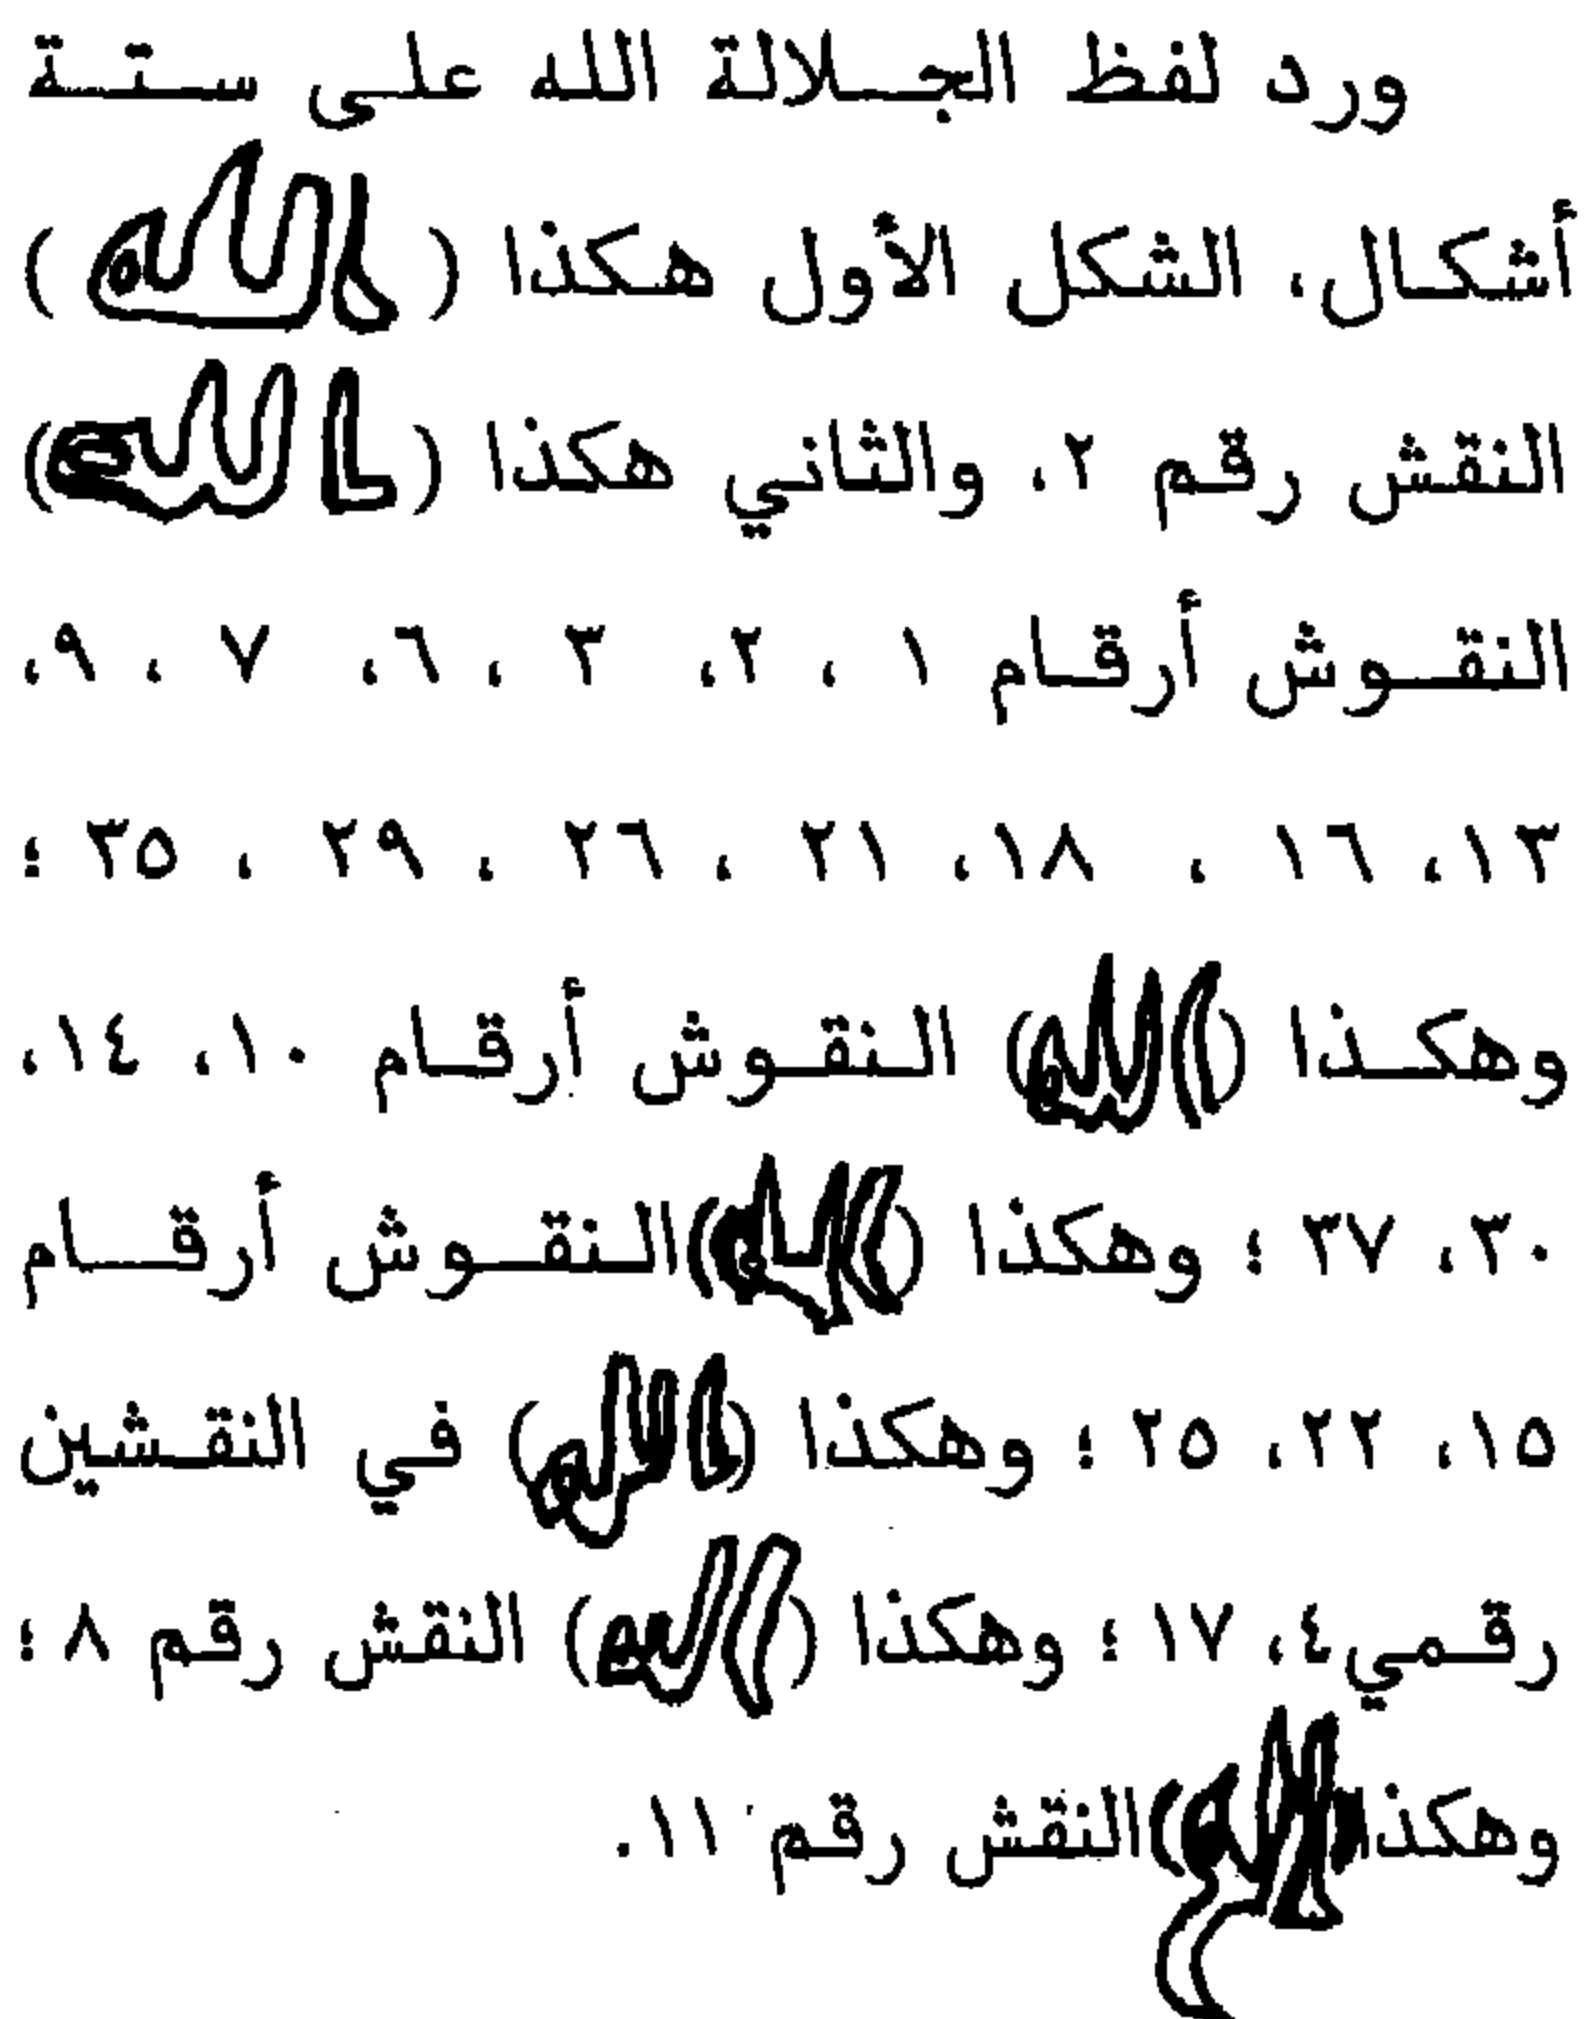 ورد لفظ الجـلالة الله على ستـة
أشكال، الشكل الأول هكذا (الله)
النقش رقم ٢، والثاني هكذا (الله)
النقـوش أرقـام ١ ، ٢، ٣ ، ٦، ٧ ، ٩،
١٣، ١٦ ، ١٨، ٢١ ، ٢٦ ، ٢٩ ، ٣٥ ؛
وهكـذا (الله) النقـوش أرقـام ١٠، ١٤،
٣٠، ٣٧ ؛ وهكذا (الله) النقـوش أرقـام
١٥، ٢٢، ٢٥ ؛ وهكذا (الله) في النقـشين
رقـمي ٤، ١٧ ؛ وهكذا (الله) النقش رقم ٨ ؛
وهكذا (الله) النقش رقم ١١.